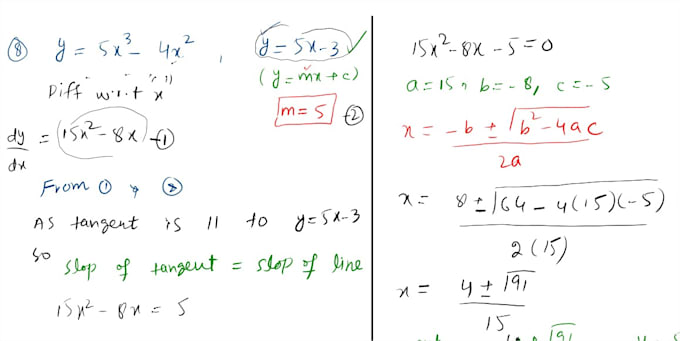 ⑧ y = 5x³ - 4x² , y = 5x-3 ✓
(y = mx + c)
Diff w.r.t x
m = 5 -②
dy/dx = 15x² - 8x -①
From ① & ②
As tangent is || to y = 5x-3
so
slop of tangent = slop of line
15x² - 8x = 5
15x² - 8x - 5 = 0
a = 15, b = -8, c = -5
x = -b ± √b² - 4ac / 2a
x = 8 ± √64 - 4(15)(-5) / 2(15)
x = 4 ± √91 / 15